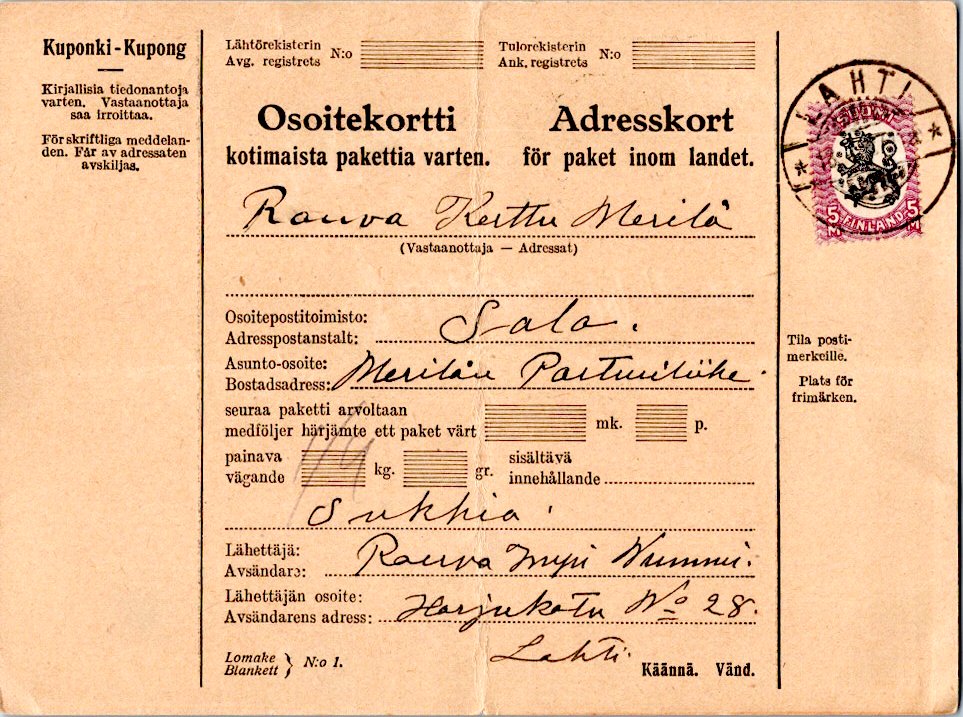 Kuponki - Kupong
Kirjallisia tiedonantoja
varten. Vastaanottaja
saa irroittaa.
För skriftliga meddelan-
den. Får av adressaten
avskiljas.
Lähtörekisterin
Avg. registrets N:o
Tulorekisterin
Ank. registrets N:o
Osoitekortti
kotimaista pakettia varten.
Adresskort
för paket inom landet.
Rouva Kerttu Merilä
(Vastaanottaja — Adressat)
Osoitepostitoimisto:
Adresspostanstalt:
Salo.
Asunto-osoite:
Bostadsadress:
Merilän Parturiliike.
seuraa paketti arvoltaan
medföljer härjämte ett paket värt mk. p.
painava
vägande kg. gr.
sisältävä
innehållande
Sukkia.
Lähettäjä:
Avsändare:
Rouva Impi
Lähettäjän osoite:
Avsändarens adress:
Harjukatu No 28.
Lahti.
Lomake
Blankett } N:o 1.
Käännä. Vänd.
LAHTI
SUOMI
5 FINLAND 5
M M
Tila posti-
merkeille.
Plats för
frimärken.